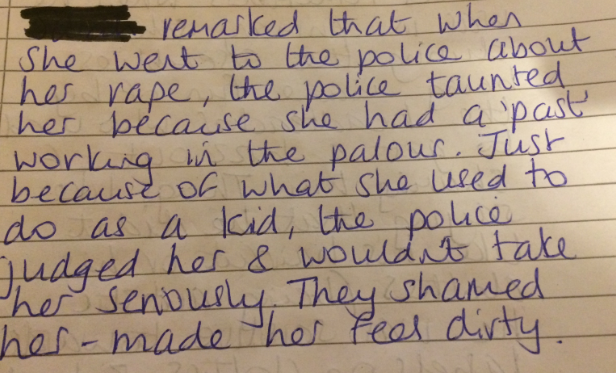 remarked that when
she went to the police about
her rape, the police taunted
her because she had a 'past'
working in the palour. Just
because of what she used to
do as a kid, the police
judged her & wouldnt take
her seriously. They shamed
her - made her feel dirty.